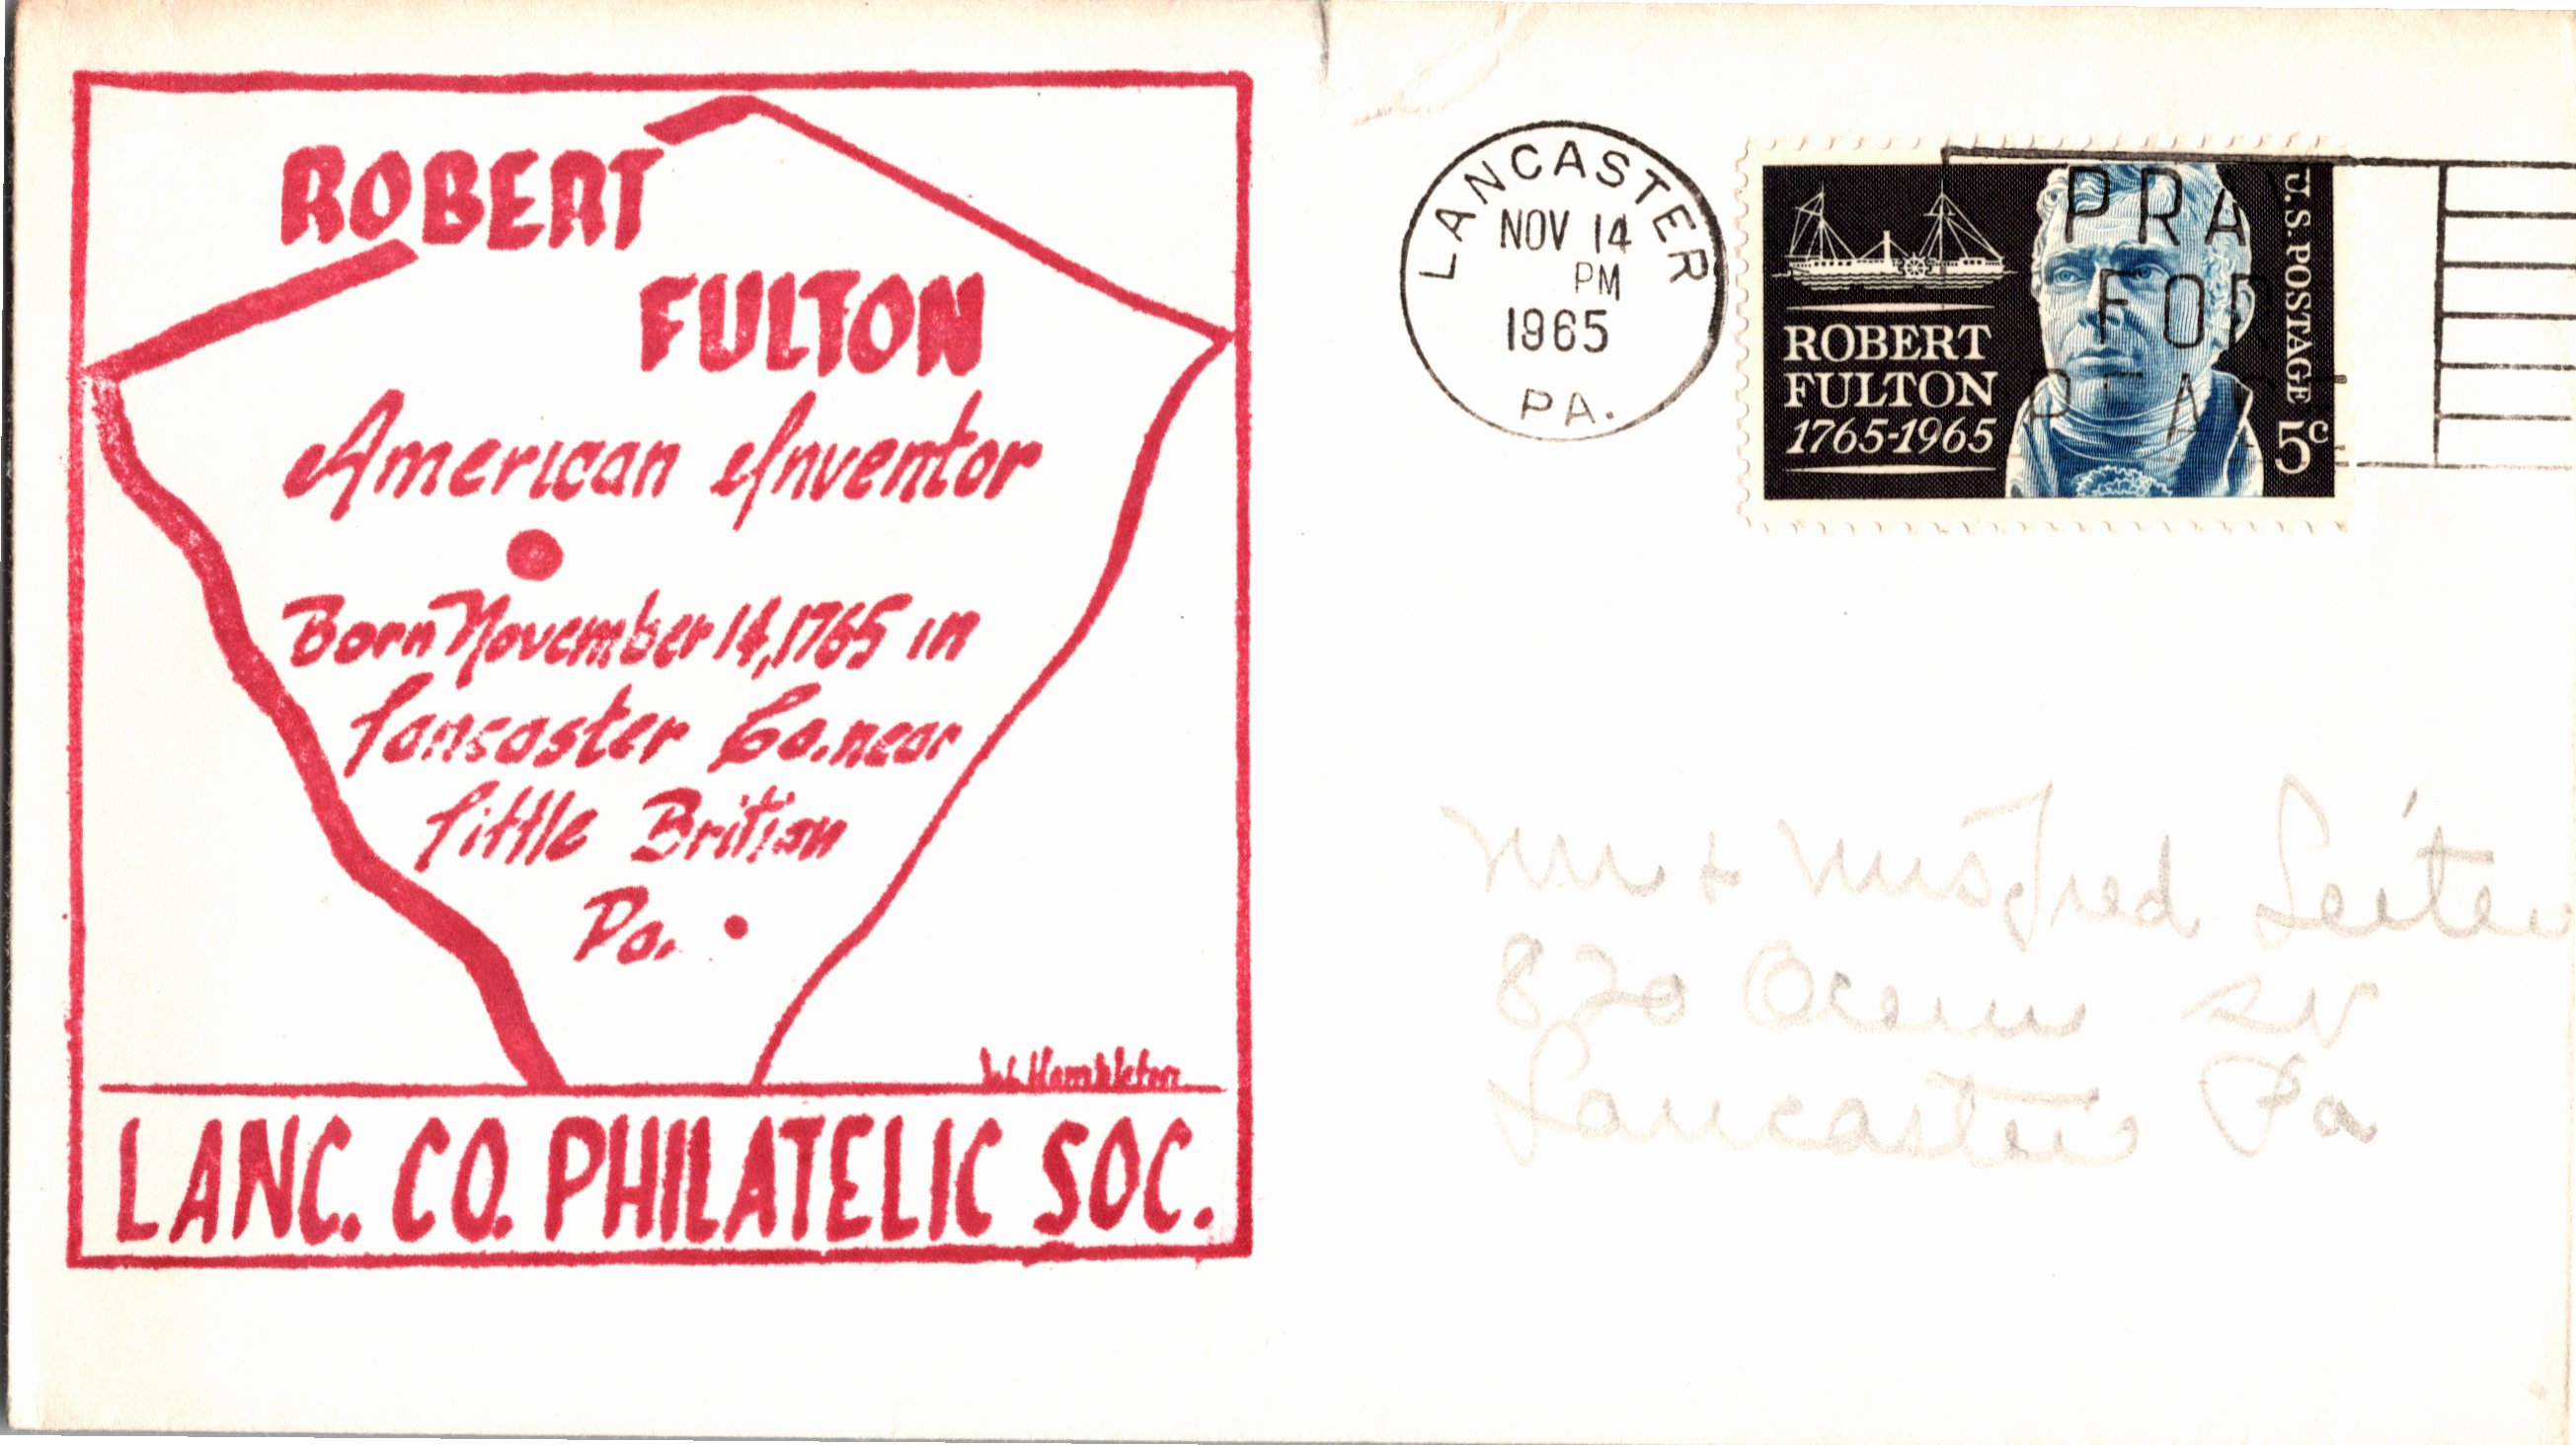 ROBERT
FULTON
American Inventor
Born November 14, 1765 in
Lancaster Co. near
Little Britian
Pa.
W Hambleton
LANC. CO. PHILATELIC SOC.
LANCASTER
NOV 14
PM
1965
PA.
PRAY
FOR
PEACE
ROBERT
FULTON
1765-1965
U.S. POSTAGE
5c
Mr & Mrs Fred
820
Lancaster Pa